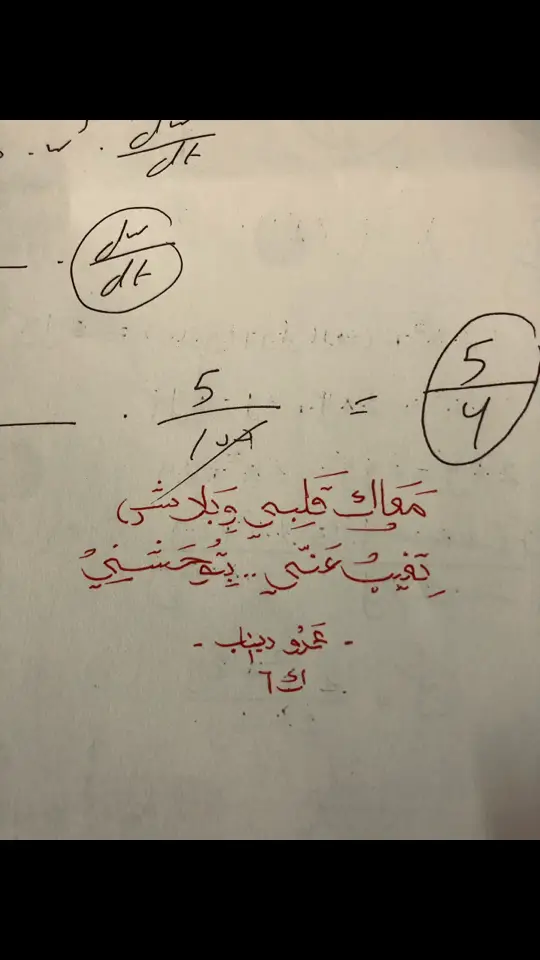 · w · dw/dt
· dw/dt
· 5/ = 5/4
مَعاك قَلبِي وِبَلاش
تِغيبْ عَنّي .. بِتُوحَشنِيْ
- عَمرُو دياب -
ك٦